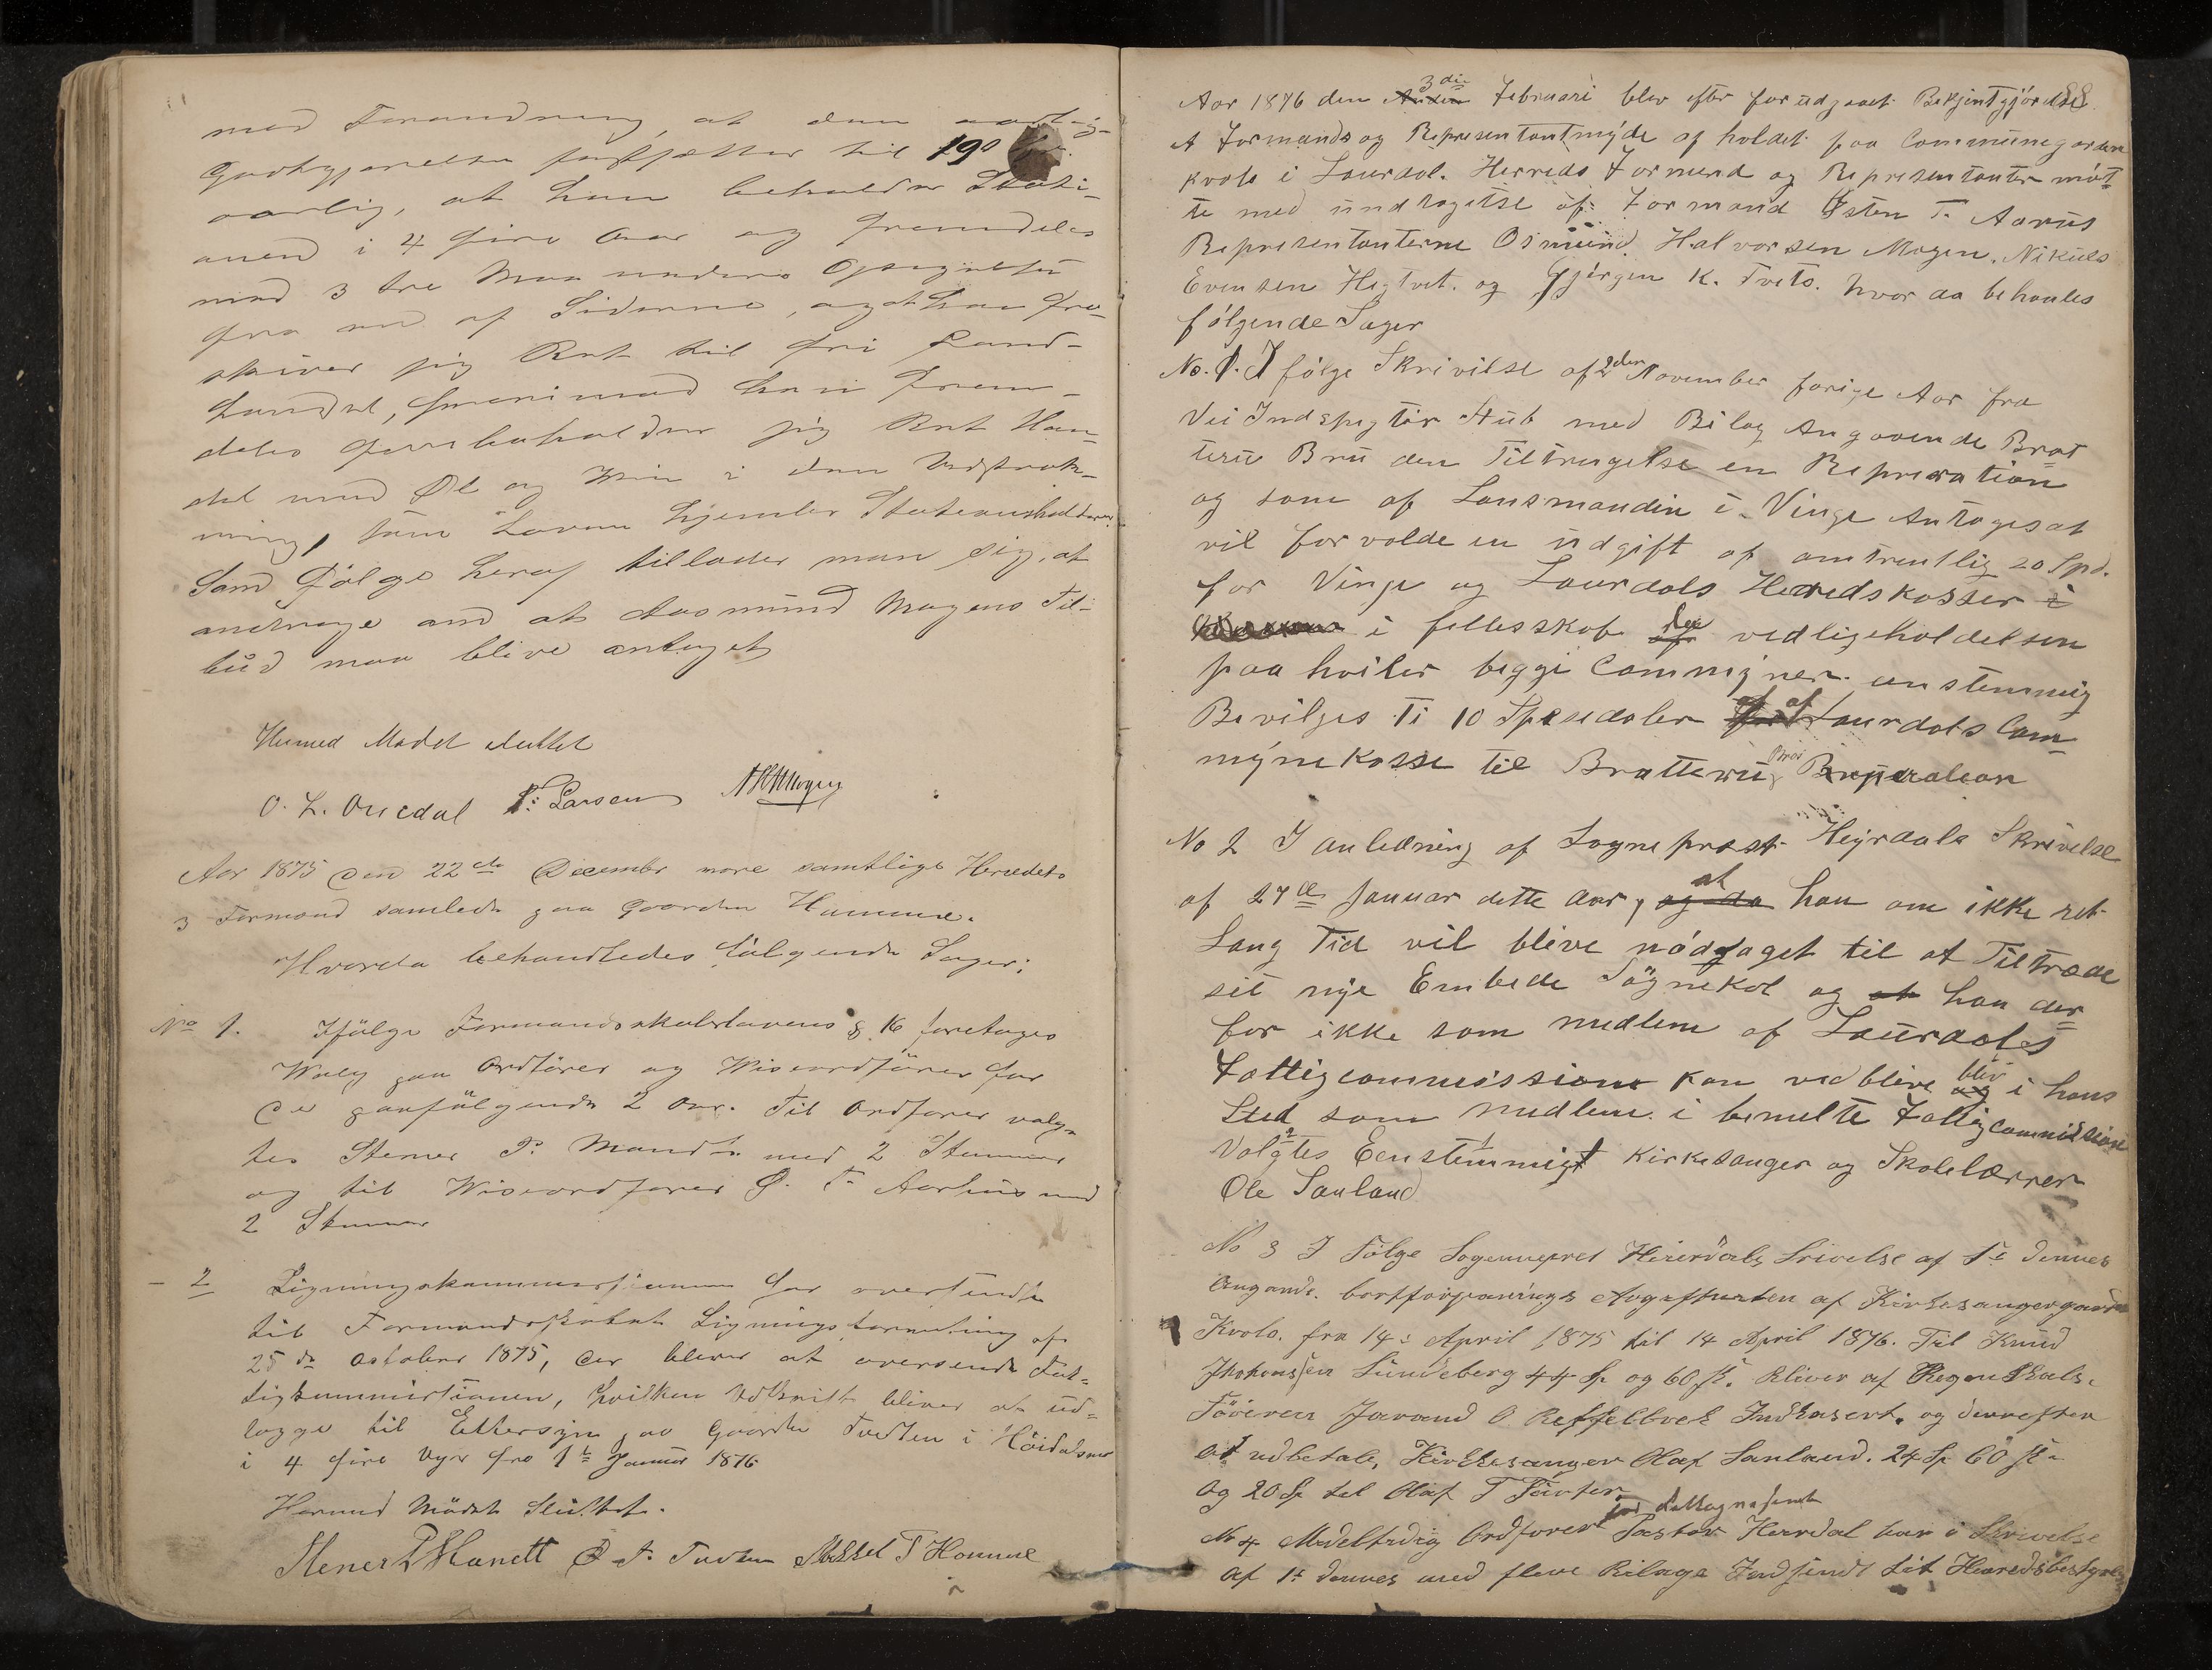 med Forandring, at den aarlig-
Godtgjørelse fastsætter til 190
aarlig, at han beholder Stati-
onen i 4 fire Aar og fremdeles
med 3 tre Maaneders Opsigelse
fra en af Siderne, og at han fra-
skriver sig Ret til fri Land-
handel, hvorimod han frem-
deles forbeholder sig Ret Han-
del med Øl og Viin i den Udstræk-
ning, som Loven hjemler Stationsholdere.
Som Følge heraf tillader man sig, at
andrage om at Aasmund Mogens Til-
bud maa blive antaget
Hermed Mødet sluttet
O. L. Ofredal P. Larsen
Aar 1875 den 22de December vare samtlige Herredets
3 Formænd samlede paa Gaarden Homme.
Hvorda behandledes følgende Sager:
No 1. Ifølge Formandsskabslovens § 16 foretoges
Valg paa Ordfører og Viseordfører for
de paafølgende 2 Aar. Til Ordfører valg-
tes Stener P. Mandt med 2 Stemmer
og til Viseordfører Ø. T. Aarhus med
2 Stemmer
- 2 Ligningskommissionen har oversendt
til Formandskabet Ligningsforretning af
25de October 1875, der bliver at oversende Fat-
tigkummistionen, hvilken Udskrift bliver at ud-
lægge til Eftersyn paa Gaarden Tveten i Høidalsmo
i 4 fire Uger fra 1ste Januar 1876
Hermed Mødet Sluttet.
Stener P Mandt Ø. T. Mikkel T Homme
Aar 1876 den Anden 3die Februari blev efter forudgaaet Bekjentgjørelse 88
et Formands og Representantmøde afholdet paa Communegorden
kvolo i Laurdal. Herreds Formend og Representanter møt-
te med undtagelse af: Formand Østen T. Aarus
Representanterne Osmund Halvorsen Mogen, Nikuls
Evensen Hegtvet. og Gjørgen K. Tveto. hvor da behanles
følgende Sager
No. 1. I følge Skrivilse af 2den November forige Aar fra
Vei Indspegtør Hub med Bilag Angaaende Brot
teru Bru den Tiltrengelse en Repreration
og som af Lansmanden i Vinge Antoges at
vil forvolde en udgift af omtrentlig 20 Spd.
for Vinje og Laurdals Heredskasser i
i fellesskob da vedligeholdelsen
paa hviler begge Commyner. enstemmig
Bevilges Ti 10 Spesidaler af Laurdals Com-
mynekasse til Bratteru Bros Reperatian
No 2 I anledning af Sogneprest Heyrdals Skrivelse
af 27de Januar dette Aar, og da at han om ikke ret
Lang Tid vil blive nødsaget til at Tiltræde
sit nye Embede Søgnekol og at han der
for ikke som medlem af Laurdals
Fattigcommission kan vedblive og blev i hans
Sted som medlem i bemelte Fatigcommission
Valgtes Eenstemmigt Kirkesanger og Skolelærrer
Ole Sanland
No 3 I Følge Sogneprest Heierdals Srivelse af 1ste dennes
Angaade. bortforpagtnings Avgifften af Kirkesangergaarden
Kvolo. fra 14: April 1875 til 14 April 1876. Til Knud
Jhohonssen Sundeberg 44 Sp og 60 sk. Bliver af Regenskabs-
Føreren Jarand O. Reffelbrek Indkasert. og derrefter
at udbetale, Kirkesanger Olaf Sanland. 24 Sp 60 sk.
og 20 Sp til Olaf T
No 4 Medeltidig Ordfører Pastor Heirdal har i Skrivelse
af 1st dennes med flere Bilage Indsendt til Heredsbestyrel